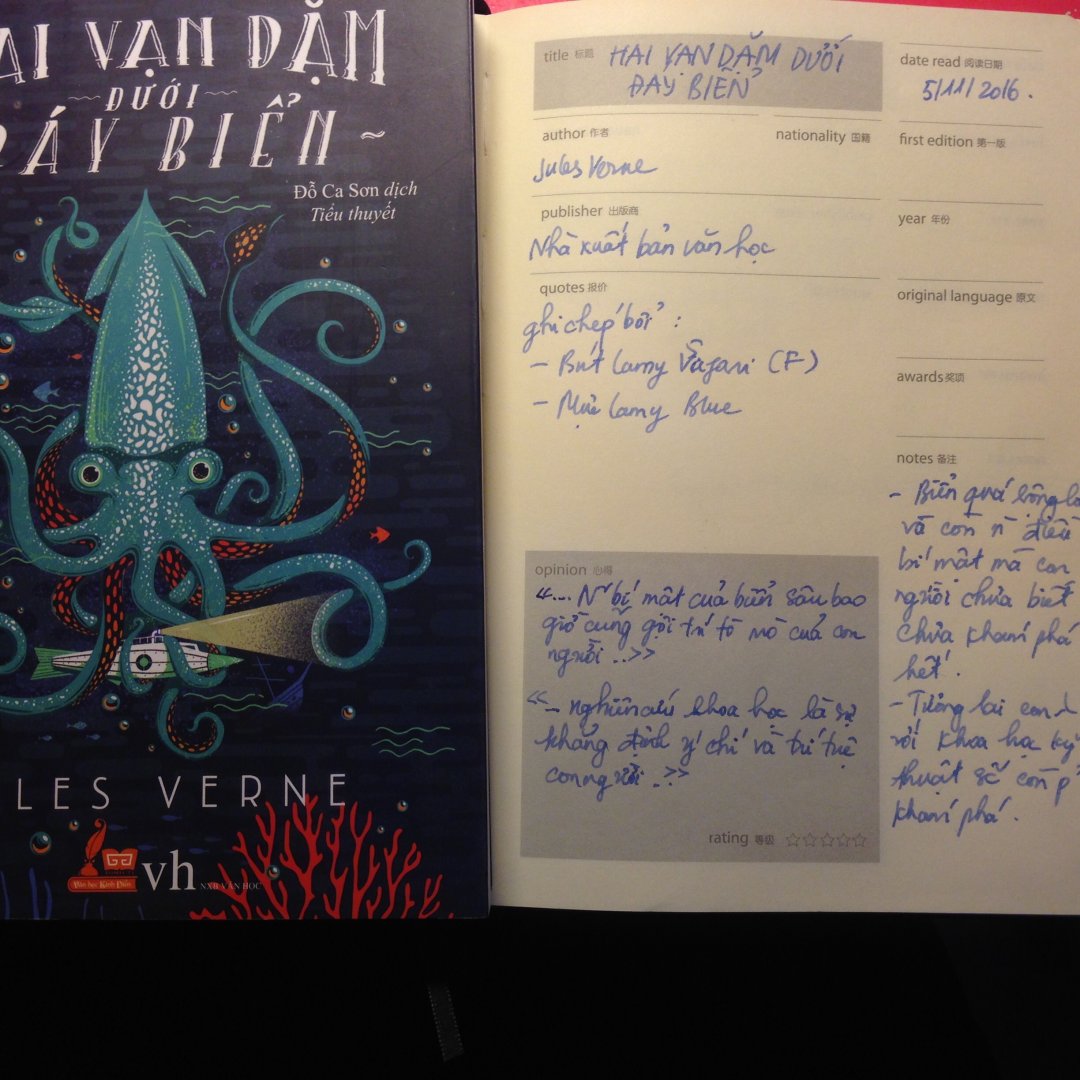 AI VẠN DẶM
DƯỚI
ĐÁY BIỂN
Đỗ Ca Sơn dịch
Tiểu thuyết
LES VERNE
Văn học Kinh Điển
vh
NXB VĂN HỌC
title 标题
HAI VẠN DẶM DƯỚI
ĐÁY BIỂN
date read 阅读日期
5/11/2016.
author 作者
nationality 国籍
first edition 第一版
Jules Verne
publisher 出版商
year 年份
Nhà xuất bản văn học
quotes 报价
original language 原文
ghi chép bởi :
- Bút Lamy Safari (F)
- Mực Lamy Blue
awards 奖项
notes 备注
- Biển quá rộng
và còn điều
bí mật mà con
người chưa biết
chưa khám phá
hết.
- Tương lai con
với khoa học kỹ
thuật sẽ còn
khám phá.
opinion 心得
"... bí mật của biển sâu bao
giờ cũng gợi trí tò mò của con
người ..>>
<<- nghiên cứu khoa học là sự
khẳng định ý chí và trí tuệ
con người . >>
rating 等级 ☆☆☆☆☆